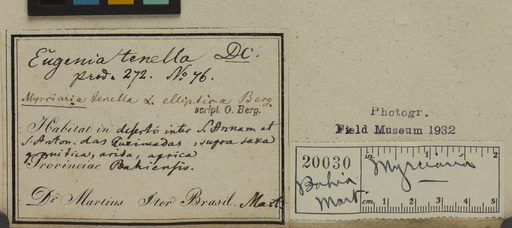 Eugenia tenella DC.
prod. 272. No 76.
Myrciaria tenella L. elliptica Berg.
script. O. Berg.
Habitat in deserto inter S. Annam et
S. Anton. das Queimadas, supra saxa
granitica, arida, aprica
Provinciae Bahiensis.
Dr. Martius Iter Brasil. Mart.
Photogr.
Field Museum 1932
20030
Myrciaria
Bahia
Mart.
in 1 2
cm 1 2 3 4 5